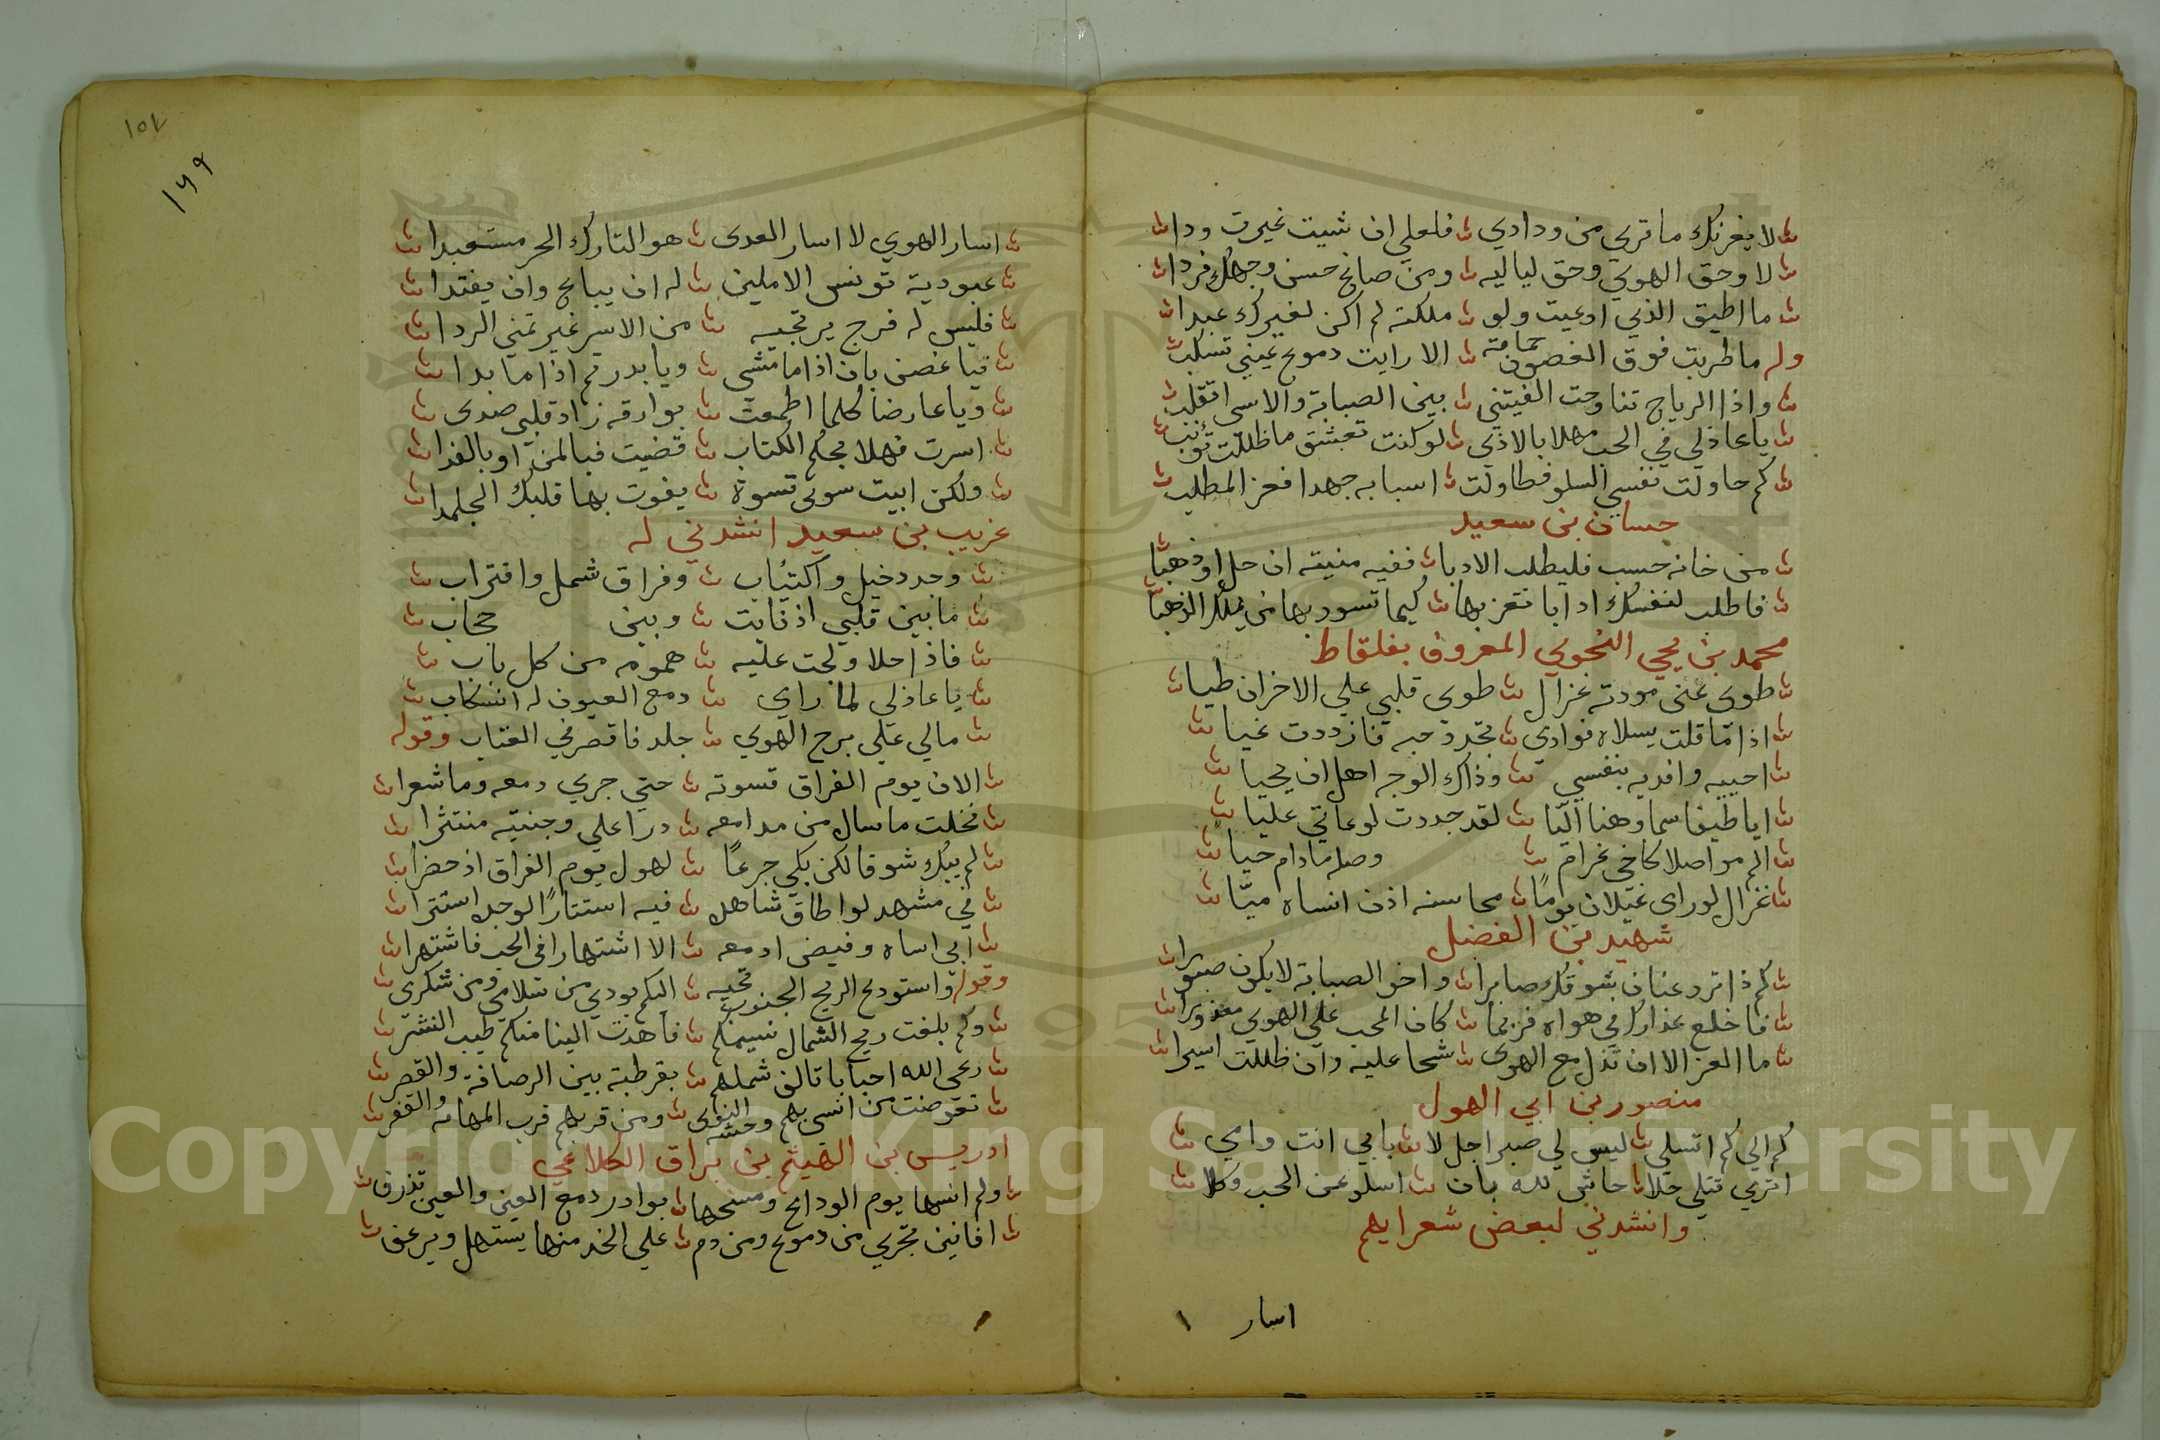 لا يغرنك ما تري من ودادي فلعلي ان شيت غيرت ودا
لا وحق الهوي وحق لياليه ومن صانع حسن وجهك فردا
ما اطيق الذي ادعيت ولو ملكته لم اكن لغيرك عبدا
وله ما طربت فوق الغصون حمامة الا رايت دموع عيني تسكب
واذا الرياح تناوحت الفيتني بين الصبابة والاسي اتقلب
يا عاذلي في الحب مهلا بالاذي لو كنت تعشق ما ظللت تونب
كم حاولت نفسي السلو فطاولت اسبابه جهدا فعز المطلب
حسان بن سعيد
من خانه حسب فليطلب الادبا ففيه منيته ان حل او ذهبا
فاطلب لنفسك ادابا تعز بها كيما تسود بها من يملك الذهبا
محمد بن يحي النحوي المعروف بقلقاط
طوي عني مودته غزال طوي قلبي علي الاخران طيا
اذا ما قلت يسلاه فوادي تجرد حبه فازددت غيا
احييه وافديه بنفسي وذاك الوجه اهل ان يحيا
ايا طيفا سما وهنا اليا لقد جددت لوعاتي عليا
الم مواصلا كاخي غرام وصله مادام حيا
غزال لو راي غيلان يوما محاسنه اذن انساه ميا
شهيد بن الفضل
كم ذا ترد عنان شوقك صابرا واخو الصبابة لا يكون صبورا
فاخلع عذارك في هواه فربما كان المحب علي الهوي معذورا
ما العز الا ان تذل مع الهوي شحا عليه وان ظللت اسيرا
منصور بن ابي الهول
كم الي كم اتسلي ليس لي صبر اجل لا بابي انت وامي
اتري قتلي حلا حاش لله بان اسلو عن الحب وكلا
وانشدني لبعض شعرايهم
اسار
١٥٧
١٤٩
اسار الهوي لا اسار العدي هو التارك الحر مستعبدا
عبودية تونس الاملين له ان يباع وان يفتدا
فليس له فرج يرتجيه من الاسر غير تمني الردا
فيا غضن بان اذا ما مشي ويا بدر تم اذا ما بدا
ويا عارضا كلما اطمعت بوارقه زاد قلبي صدي
اسرت فهلا بحكم الكتاب قضيت فبالمن او بالفدا
ولكن ابيت سوي قسوة يفوت بها قلبك الجلمدا
غريب بن سعيد انشدني له
وجد دخيل واكتياب وفراق شمل واقتراب
ما بين قلبي اذ نايت وبين حجاب
فاذا خلا ولجت عليه همومه من كل باب
يا عاذلي لما راي دمع العيون له انسكاب
مالي علي برح الهوي جلد فاقصر في العتاب وقوله
الان يوم الفراق قسوته حتي جري دمعه وما شعرا
فخلت ما سال من مدامعه درا علي وجنتيه منتثرا
لم يبك شوقا لكن بكي جزعا لهول يوم الفراق اذ حضرا
في مشهد لو اطاق شاهد فيه استتارا لوجده استترا
ابي اساه وفيض ادمعه الا اشتهارا في الحب فاشتهرا
وقوله واستودع الريح الجنوب تحيه اليكم بودي من سلامي ومن شكري
وكم بلغت ريح الشمال نسيمكم فاهدت الينا منكم طيب النشر
رعي الله احبابا تالف شملهم بقرطبة بين الرصافة والقصر
تعوضت من انسي بهم وحشة النوي ومن قربهم قرب المهامه والقفر
ادريس بن الهيثم بن براق الكلاعي
ولم انسها يوم الوداع ومسحها بوادر دمع العين والعين تذرف
افانين تجري من دموع ومن دم علي الخد منها يستهل ويرعف